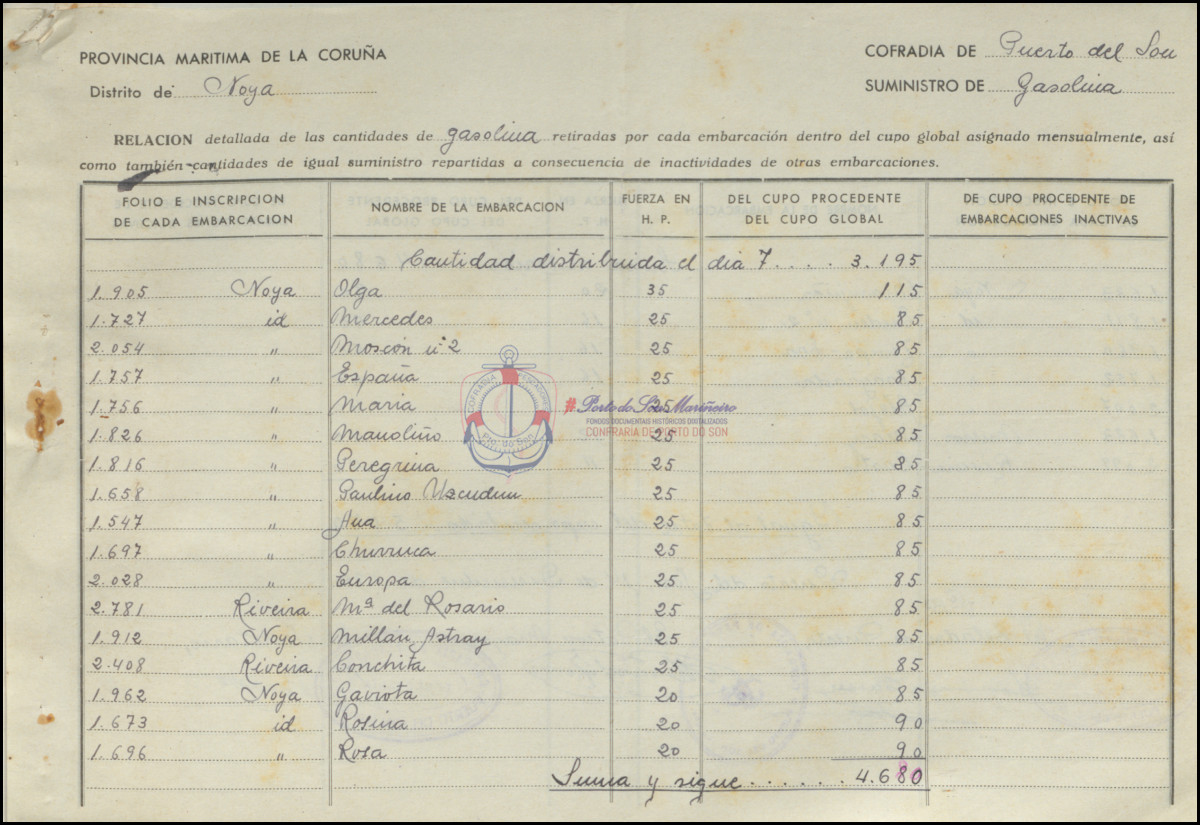 PROVINCIA MARITIMA DE LA CORUÑA
COFRADIA DE Puerto del Son
Distrito de Noya
SUMINISTRO DE Gasolina
RELACION detallada de las cantidades de gasolina retiradas por cada embarcación dentro del cupo global asignado mensualmente, así
como también cantidades de igual suministro repartidas a consecuencia de inactividades de otras embarcaciones.
FOLIO E INSCRIPCION DE CADA EMBARCACION
NOMBRE DE LA EMBARCACION
FUERZA EN H. P.
DEL CUPO PROCEDENTE DEL CUPO GLOBAL
DE CUPO PROCEDENTE DE EMBARCACIONES INACTIVAS
Cantidad distribuida el dia 7 .... 3.195
1.905 Noya Olga 35 115
1.727 id Mercedes 25 85
2.054 " Moscón nº 2 25 85
1.757 " España 25 85
1.756 " Maria 25 85
1.826 " Manoliño 25 85
1.816 " Peregrina 25 85
1.658 " Paulino Uzcudun 25 85
1.547 " Ana 25 85
1.697 " Churruca 25 85
2.028 " Europa 25 85
2.781 Riveira Mª del Rosario 25 85
1.912 Noya Millán Astray 25 85
2.408 Riveira Conchita 25 85
1.962 Noya Gaviota 20 85
1.673 id Rosina 20 90
1.696 " Rosa 20 90
Suma y sigue ...... 4.680
COFRADIA PESCADORES
Pto. do Son
#Porto do Son Mariñeiro
FONDOS DOCUMENTAIS HISTÓRICOS DIXITALIZADOS
CONFRARIA DE PORTO DO SON